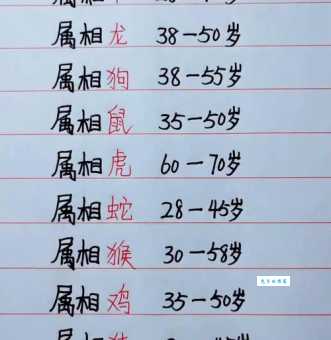 属相龙 38-50岁
属相狗 38-55岁
属相鼠 35-50岁
属相虎 60-70岁
属相蛇 28-45岁
属相猴 30-58岁
属相鸡 35-50岁
属相